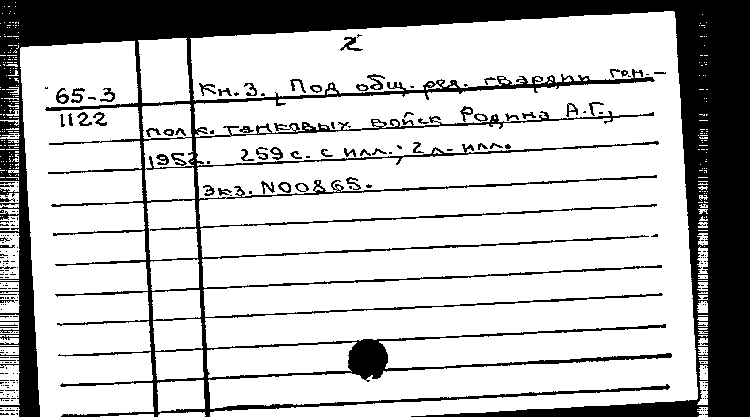 2
65-3
1122
Кн.3. Под общ. ред. гвардии ген.-
полк. танковых войск Родина А.Г.,
1952. 259 с. с илл.; 2 л. илл.
Экз. N00865.